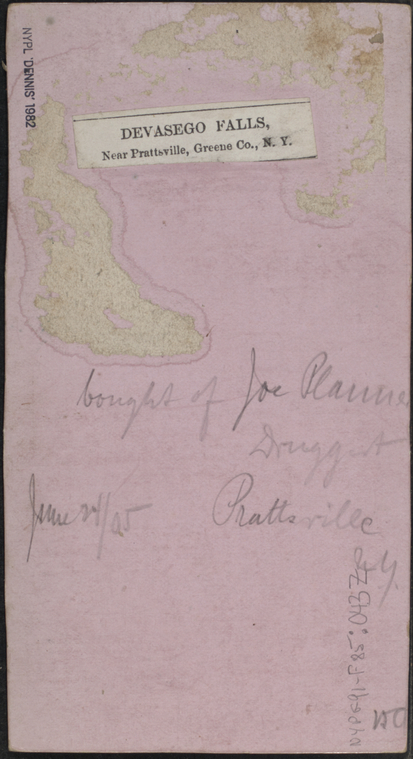 NYPL 'DENNIS' 1982
DEVASEGO FALLS,
Near Prattsville, Greene Co., N. Y.
bought of Joe Planne
Druggist
June
Prattsville
N.Y.